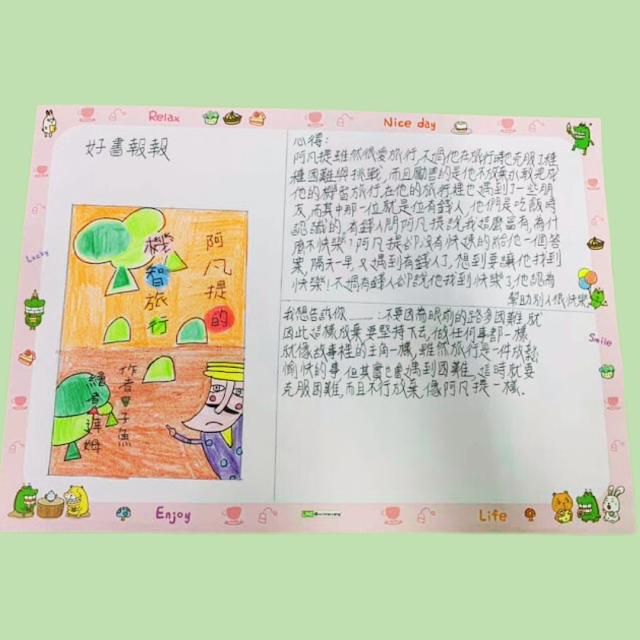 Relax
Nice day
好書報報
心得：
阿凡提雖然很愛旅行，不過他在旅行時也克服了種
種困難與挑戰，而且勵害的是他不放棄
他的機智旅行，在他的旅行裡也遇到了一些朋
友，而其中那一位就是位有錢人，他們是吃飯時
認識的，有錢人問阿凡提說我這麼富有，為什
麼不快樂？阿凡提卻沒有快速的給他一個答
案，隔天一早，又遇到有錢人了，想到要讓他找到
快樂！不過有錢人卻說他找到快樂了，他認為
幫助別人很快樂
阿凡提的
機智旅行
作者 子魚
繪者 達姆
我想告訴你____：不要因為眼前的路多困難，就
因此這樣放棄，要堅持下去，做任何事都一樣
就像故事裡的主角一樣，雖然旅行是一件放鬆
愉快的事，但其實也會遇到困難，這時就要
克服困難，而且不行放棄，像阿凡提一樣．
Lucky
Smile
Enjoy
Life